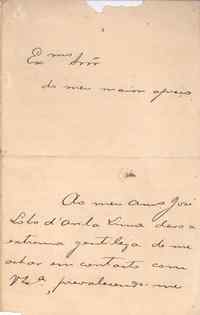 Exmo Snr
do meu maior apreço
Ao meu amo José
Lobo d'Avila Lima devo a
extrema gentileza de me
achar em contacto com
V Exª, prevalecendo-me